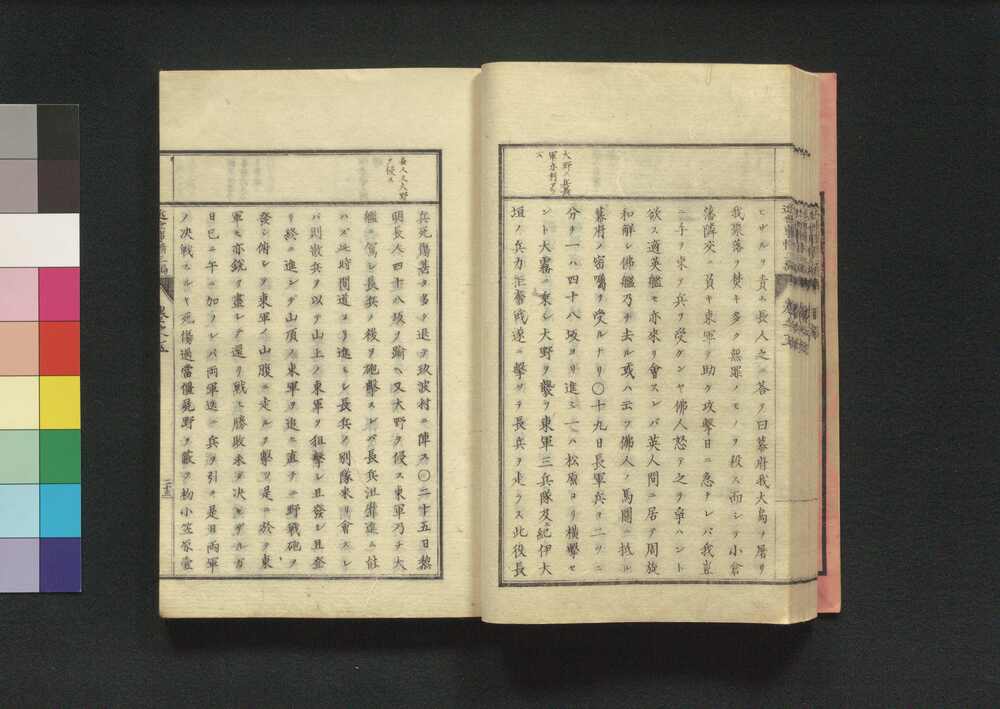 大野ノ兵義
軍亦利アラ
ズ
ヒザルヲ責ム長人之ニ答ヲ曰幕府我大島ヲ屠リ
我聚落ヲ焚キ多ク無罪ノモノヲ殺ス而シテ小倉
藩隣交ニ負キ東軍ヲ助ケ攻撃日ニ急ナレバ我豈
ニ手ヲ束子兵ヲ受ケンヤ佛人怒テ之ヲ爭ハント
欲ス適英艦モ亦來リ會スレバ英人間ニ居テ周旋
和解シ佛艦乃チ去ル或ハ云フ佛人ノ馬關ニ抵ル
幕府ノ密囑ヲ受ルナリ〇十九日長軍兵ヲ二ツニ
分チ一ハ四十八坂ヨリ進ミ一ハ松原ヨリ横撃セ
ント大霧ニ乗シ大野ヲ襲フ東軍三兵隊及ビ紀伊大
垣ノ兵力奮戰遂ニ撃ヲ長兵ヲ走ラス此役長
長人又大野
ヲ侵ス
兵死傷甚タ多ク退テ玖波村ニ陣ス〇二十五日黎
明長人四十八坂ヲ踰ヘ又大野ヲ侵ス東軍乃チ大
艦ニ駕シ長兵ノ後ヲ砲撃スレバ長兵沮進ニ能
ハズ此時間道ヨリ進ミシ長兵ノ別隊來リ會スレ
バ則散兵ヲ以テ山上ノ東軍ヲ狙撃シ且發シ且登
リ終ニ進ンデ山頂ノ東軍ヲ追ヒ直チニ野戰砲ヲ
發シ俯シテ東軍ノ山腹ニ走ルヲ撃ツ是ニ於テ東
軍モ亦銳ヲ盡シテ還リ戰ヒ勝敗未ダ決セザルガ
日已ニ午ニ加フレバ両軍迭ニ兵ヲ引ク是日両軍
ノ決戰スルヤ死傷過當僵屍野ヲ蔽フ初小笠原壹